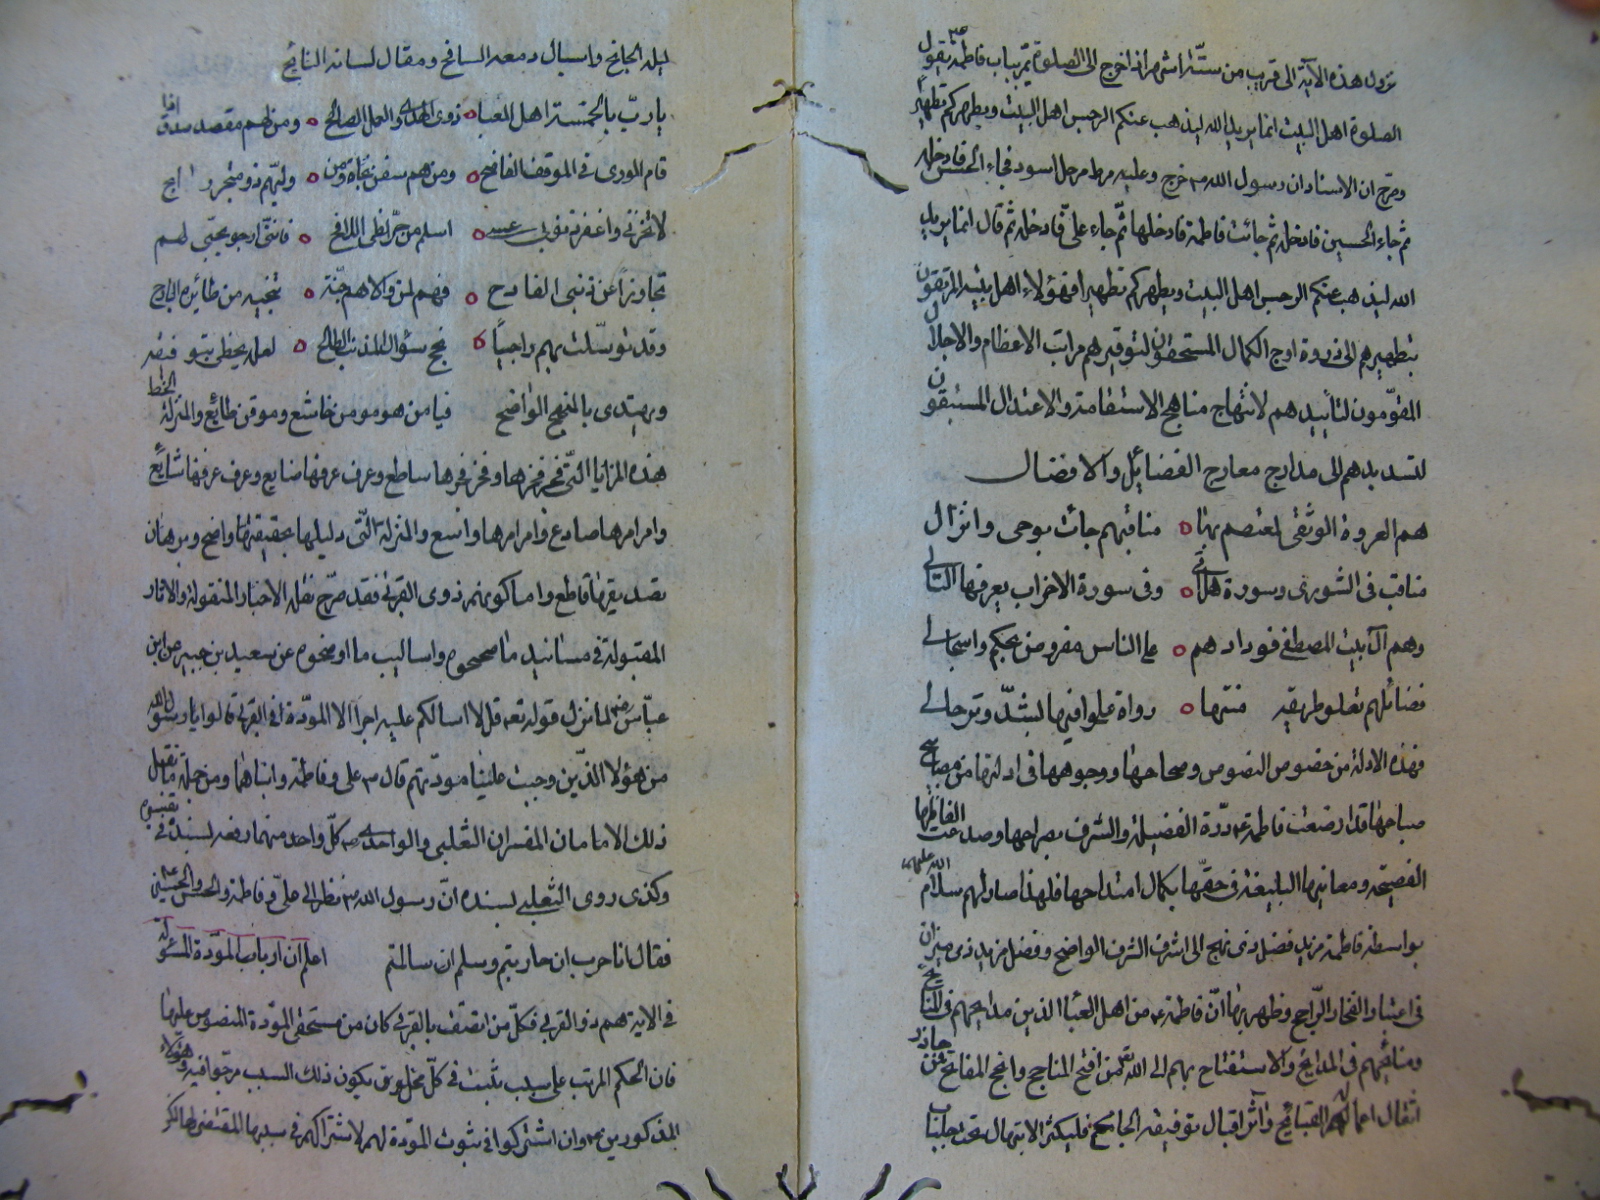 نزول هذه الآية الى قريب من ستة اشهر اذا خرج الى الصلوة يمر بباب فاطمة يقول
الصلوة اهل البيت انما يريد الله ليذهب عنكم الرجس اهل البيت ويطهركم تطهيرا
وصرح ان الاستاد ان رسول الله ص خرج وعليه مرط مرحل اسود فجاء الحسن فادخله
ثم جاء الحسين فادخله ثم جائت فاطمة فادخلها ثم جاء علي فادخله ثم قال انما يريد
الله ليذهب عنكم الرجس اهل البيت ويطهركم تطهيرا فهؤلاء اهل بيته المرتقون
بتطهيرهم الى ذروة اوج الكمال المستحقون لتوقيرهم مراتب الاعظام والاجلال
المقومون لتأييدهم لانتهاج مناهج الاستقامة والاعتدال المستبقون
لتسديدهم الى مدارج معارج الفضايل والافضال
هم العروة الوثقى لمعتصم بها مناقبهم جائت بوحى وانزال
مناقب فى الشورى وسورة هل اتى وفى سورة الاحزاب يعرفها التالى
وهم آل بيت المصطفى فودادهم على الناس مفروض بحكم واسجال
فضائلهم تعلو طريقة متنها رواة علوا فيها بشد وترحال
فهذه الادلة من خصوص النصوص وصحاحها ووجوهها فى ادلتها من مصابيح
صباحها قد ارضعت فاطمة ع درة الفضيلة والشرف بصراحها وصدعت الفاظها
الفصيحة ومعانيها البليغة فى حقها بكمال امتداحها فلهذا صار لهم سلام الله عليهم
بواسطة فاطمة مزيد فضل ذى نهج الى اشرف الشرف الواضح وفضل مزيد ذى ميزان
فى اعتبار الفخار الراجح وظهر بها ان فاطمة ع من اهل العبا الذين مدايحهم فى
ومنائحهم فى المدايح والاستفتاح بهم الى الله تع من افتح المناجح وانجح المفاتح فمن حاذر
اثقال اعماله القبائح وآثر اقبال توفيقه الجامح فليكثر الابتهال تحت جلباب
ليله الجانح واسبال دمعه السافح ومقال لسانه النائح
يا رب بالخمسة اهل العبا ذوى الهدى والعمل الصالح ومن هم مقصد صدق اذا
قام الورى فى الموقف الفاضح ومن هم سفن نجاة ومن واليهم ذو متجر رابح
لا تخزنى واغفر ذنوبى عسى اسلم من حر لظى اللافح فاننى ارجو بحبى لهم
تجاوزا عن ذنبى الفادح فهم لمن والاهم جنة تنجيه من طائره البارح
وقد توسلت بهم راجيا نجح سؤال المذنب الطالح لعله يحظى بتوفيقه
ويهتدى بالمنهج الواضح فيا من هو مومن خاشع وموقن طايع والمنزلة
هذه المزايا التى فجر فخرها وفخر فجرها ساطع وعرف عرفها ضايع وعرف عرفها شايع
وامرامرها صادع وامرامرها واسع والمنزلة التى دليلها بحقيقتها واضح وبرهان
تصديقها قاطع واما كونهم ذوى القربى فقد صرح نقلة الاخبار المنقولة والاثار
المقبولة فى مسانيد ما صححوه واساليب ما اوضحوه عن سعيد بن جبير عن ابن
عباس رض لما نزل قوله تع قل لا اسالكم عليه اجرا الا المودة فى القربى قالوا يا رسول الله
من هؤلا الذين وجبت علينا مودتهم قال ص على وفاطمة وابناهما ومن جملة ما نقل
ذلك الامامان المفسران الثعلبى والواحدى كل واحد منهما رفعه لسنده فى تفسيره
وكذى روى الثعلبى بسنده ان رسول الله ص نظر الى على وفاطمة والحسن والحسين
فقال انا حرب ان حاربتم وسلم ان سالمتم اعلم ان ارباب المودة المسؤلة
فى الاية هم ذو القربى فكل من اتصف بالقربى كان من مستحقى المودة المنصوص عليها
فان الحكم المرتب على سبب يثبت فى كل مخلوق يكون ذلك السبب مرجوا فيه وهؤلاء
المذكورين وان اشتركوا فى ثبوت المودة لهم لاشتراكهم فى سببها المقتضى لها